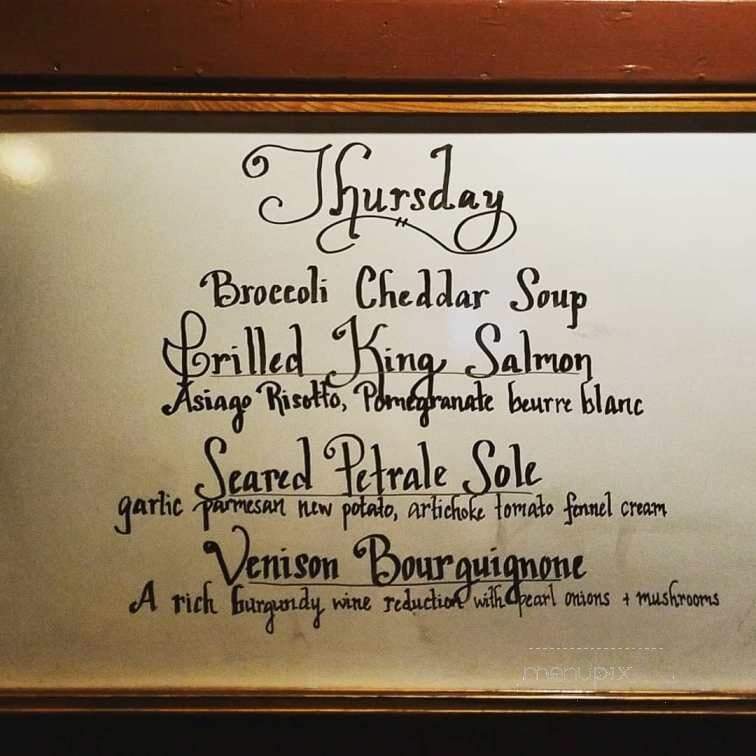 Thursday
Broccoli Cheddar Soup
Grilled King Salmon
Asiago Risotto, Pomegranate beurre blanc
Seared Petrale Sole
garlic parmesan new potato, artichoke tomato fennel cream
Venison Bourguignone
A rich burgundy wine reduction with pearl onions + mushrooms
menupix